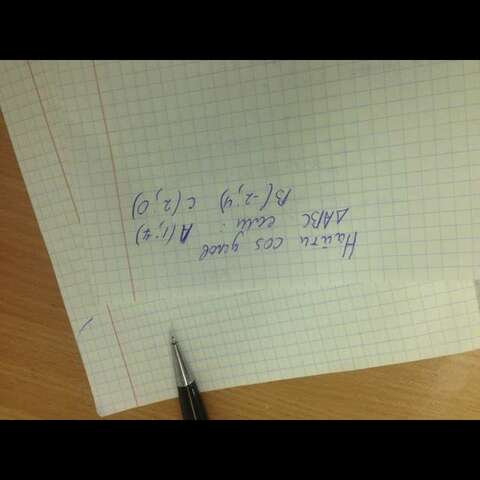 Найти cos углов
ΔABC если: A(1;7)
B(-2;4) C(2;0)